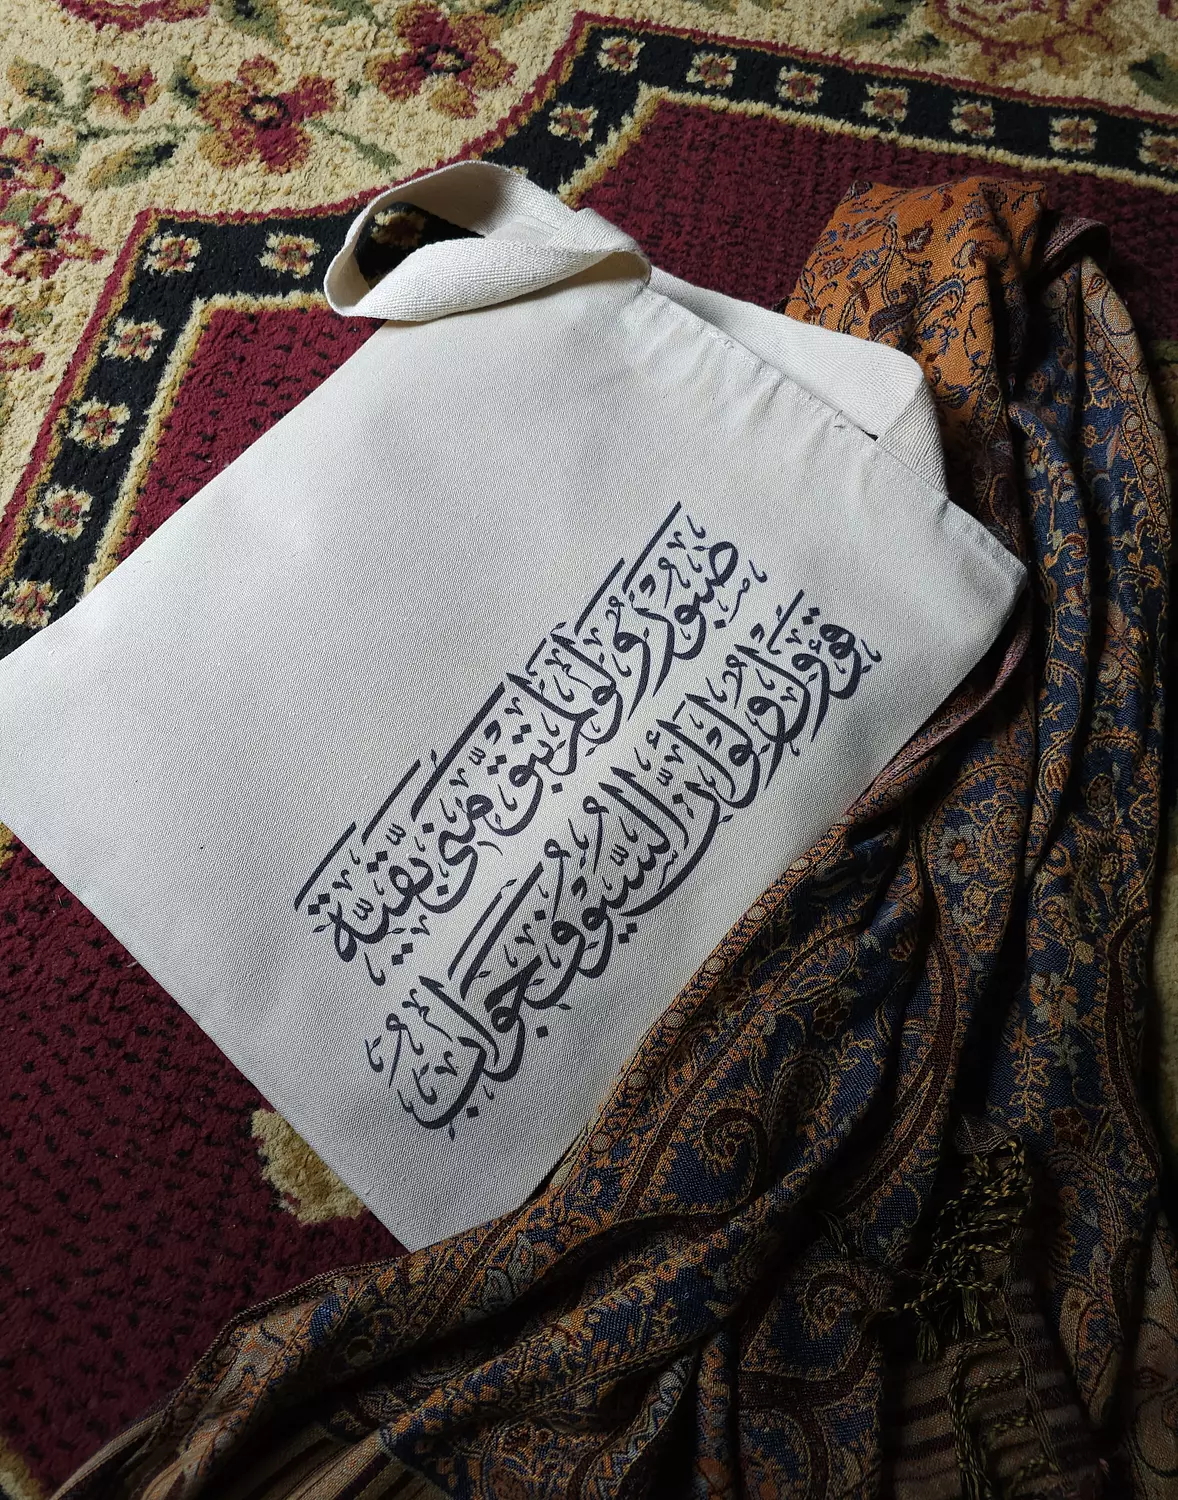 صَبُورٌ وَلَوْ لَمْ تَبْقَ مِنِّي بَقِيَّةٌ
قَؤُولٌ وَلَوْ أَنَّ السُّيُوفَ جَوَابُ